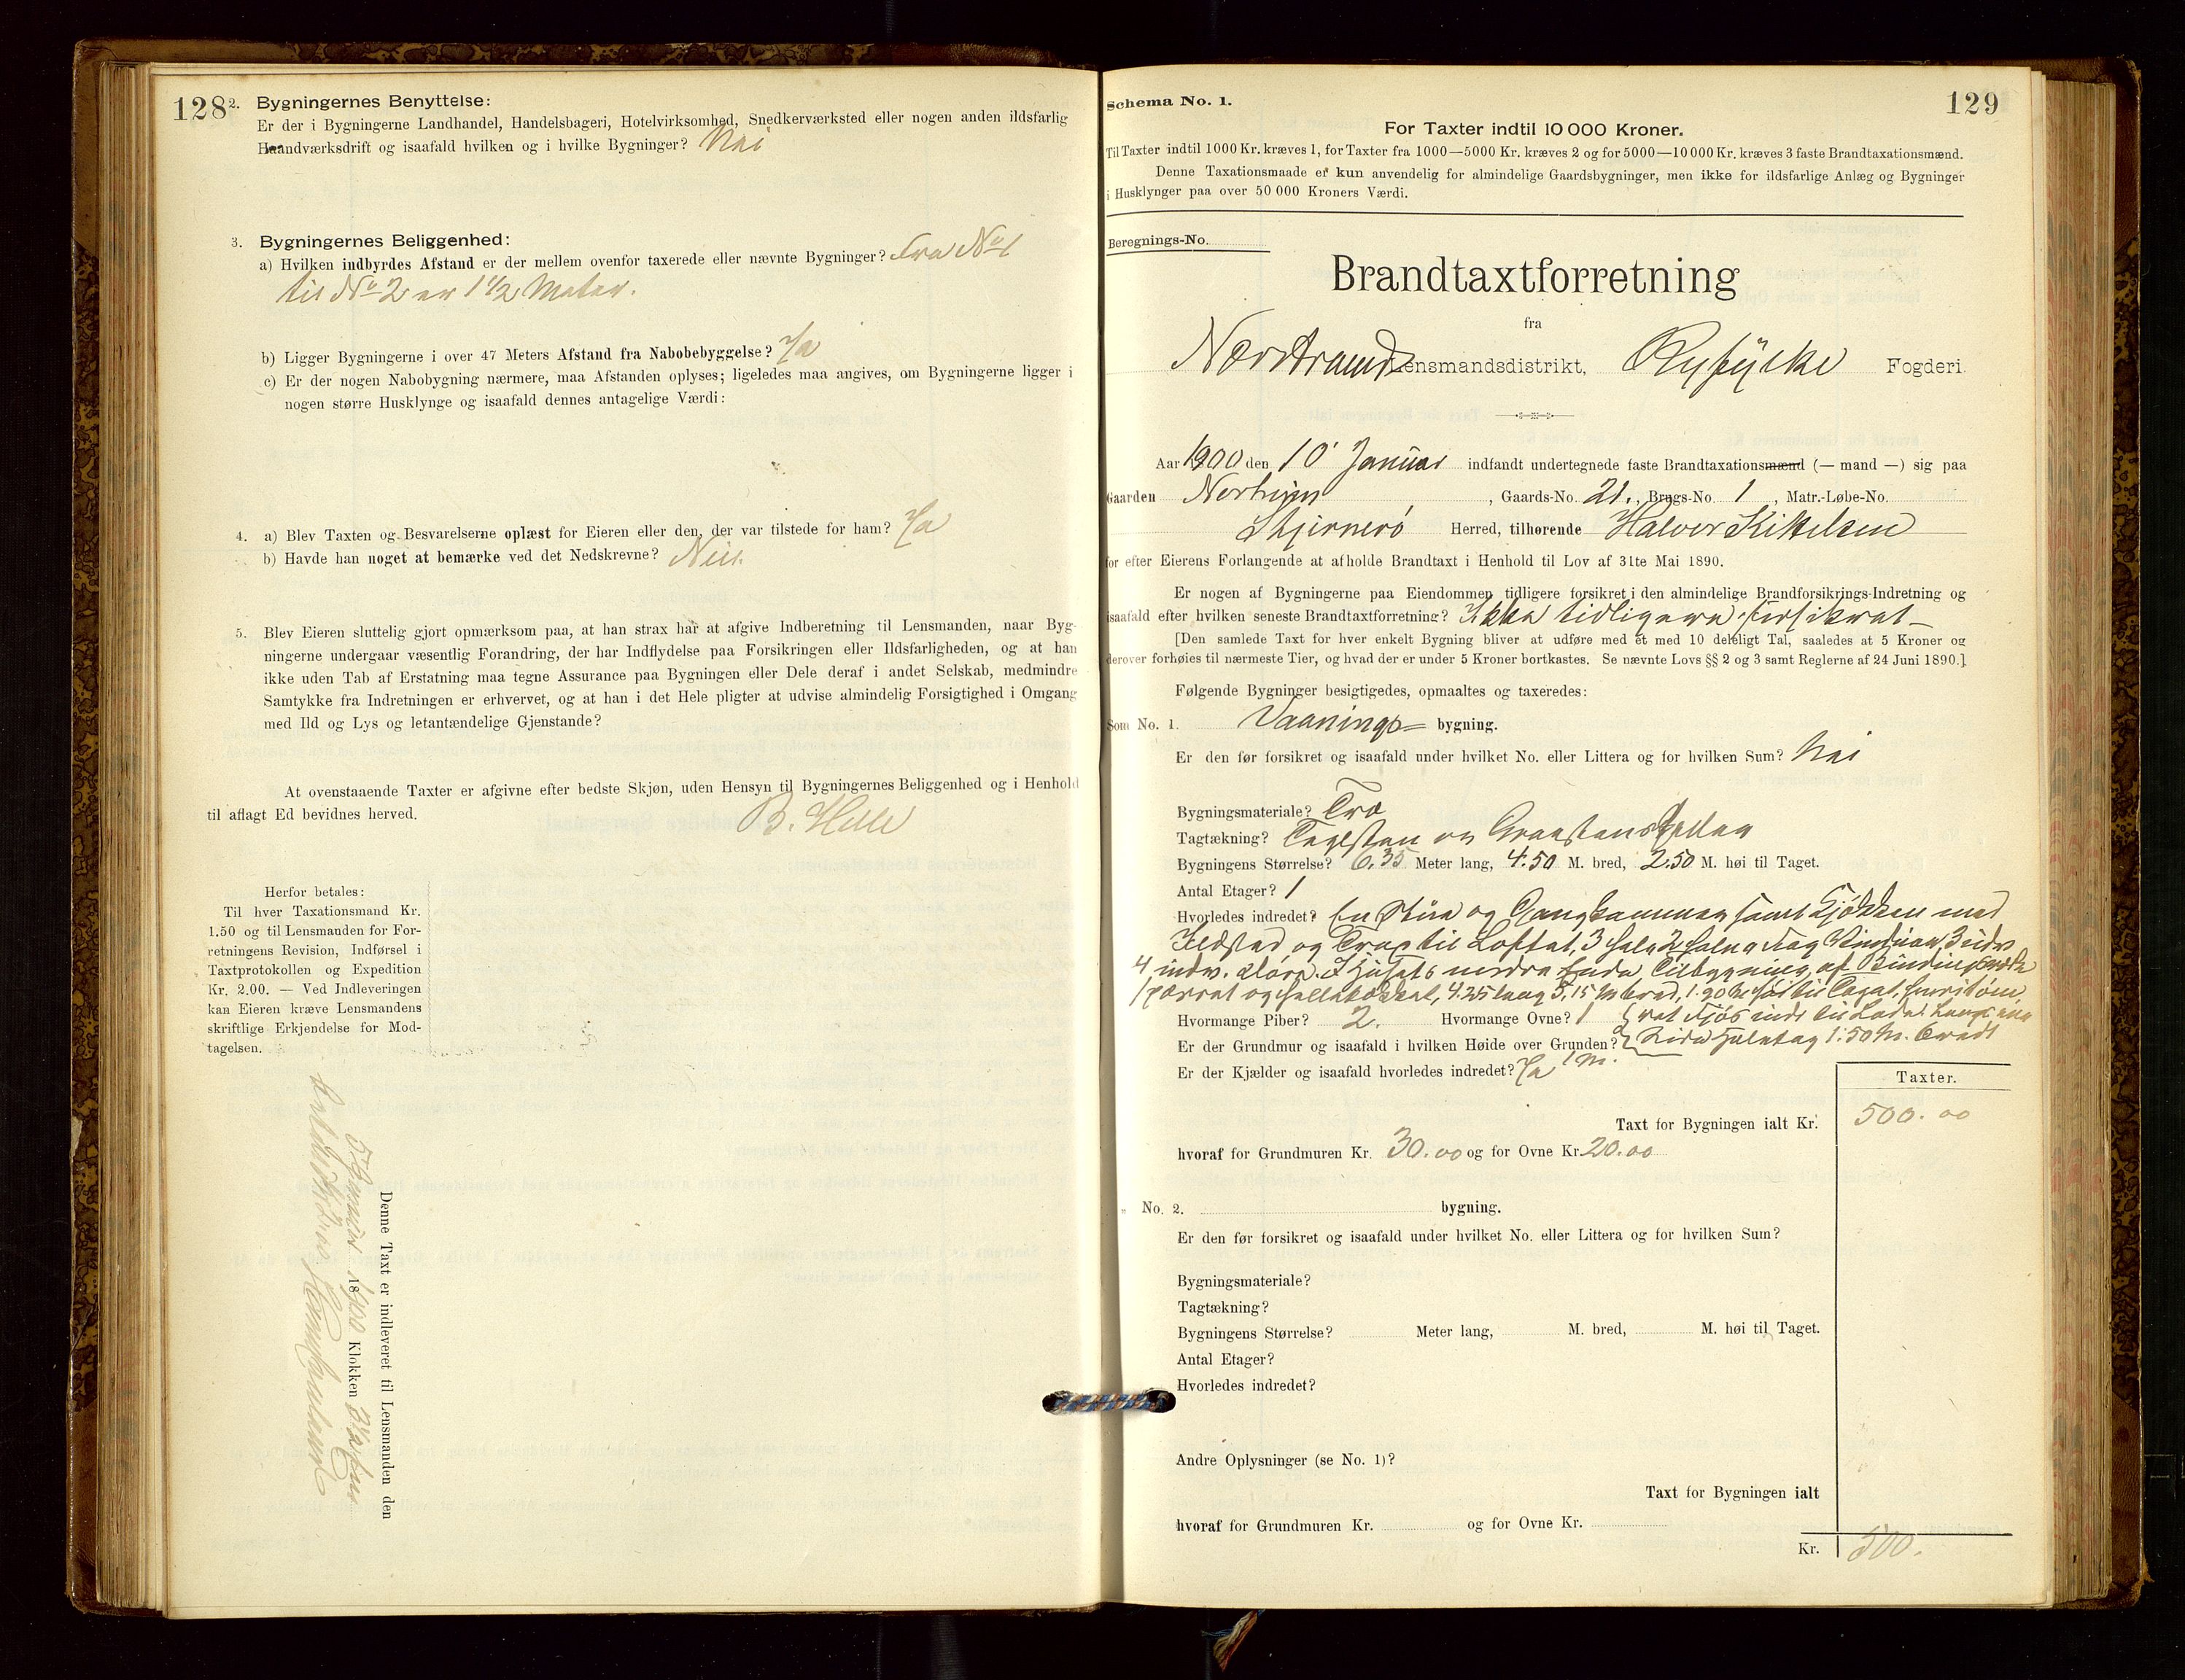 128
2. Bygningernes Benyttelse:
Er der i Bygningerne Landhandel, Handelsbageri, Hotelvirksomhed, Snedkerværksted eller nogen anden ildsfarlig
Haandværksdrift og isaafald hvilken og i hvilke Bygninger? Nei
3. Bygningernes Beliggenhed:
a) Hvilken indbyrdes Afstand er der mellem ovenfor taxerede eller nævnte Bygninger? Fra No 1
til No 2 er 1 1/2 Meter.
b) Ligger Bygningerne i over 47 Meters Afstand fra Nabobebyggelse? Ja
c) Er der nogen Nabobygning nærmere, maa Afstanden oplyses; ligeledes maa angives, om Bygningerne ligger i
nogen større Husklynge og isaafald dennes antagelige Værdi:
4. a) Blev Taxten og Besvarelserne oplæst for Eieren eller den, der var tilstede for ham? Ja
b) Havde han noget at bemærke ved det Nedskrevne? Nei.
5. Blev Eieren sluttelig gjort opmærksom paa, at han strax har at afgive Indberetning til Lensmanden, naar Byg-
ningerne undergaar væsentlig Forandring, der har Indflydelse paa Forsikringen eller Ildsfarligheden, og at han
ikke uden Tab af Erstatning maa tegne Assurance paa Bygningen eller Dele deraf i andet Selskab, medmindre
Samtykke fra Indretningen er erhvervet, og at han i det Hele pligter at udvise almindelig Forsigtighed i Omgang
med Ild og Lys og letantændelige Gjenstande?
At ovenstaaende Taxter er afgivne efter bedste Skjøn, uden Hensyn til Bygningernes Beliggenhed og i Henhold
til aflagt Ed bevidnes herved.
B. Helle
Herfor betales:
Til hver Taxationsmand Kr.
1.50 og til Lensmanden for For-
retningens Revision, Indførsel i
Taxtprotokollen og Expedition
Kr. 2.00. — Ved Indleveringen
kan Eieren kræve Lensmandens
skriftlige Erkjendelse for Mod-
tagelsen.
Denne Taxt er indleveret til Lensmanden den
Januar 1900 Klokken 3 1/2
Schema No. 1.
129
For Taxter indtil 10 000 Kroner.
Til Taxter indtil 1000 Kr. kræves 1, for Taxter fra 1000—5000 Kr. kræves 2 og for 5000—10 000 Kr. kræves 3 faste Brandtaxationsmænd.
Denne Taxationsmaade er kun anvendelig for almindelige Gaardsbygninger, men ikke for ildsfarlige Anlæg og Bygninger
i Husklynger paa over 50 000 Kroners Værdi.
Beregnings-No.
Brandtaxtforretning
fra
Nærstrand Lensmandsdistrikt, Ryfylke Fogderi
Aar 1900 den 10' Januar indfandt undertegnede faste Brandtaxationsmænd (— mand —) sig paa
Gaarden , Gaards-No. 21., Brugs-No. 1, Matr.-Løbe-No.
Skjernerö Herred, tilhørende Halvor Kittelsen
for efter Eierens Forlangende at afholde Brandtaxt i Henhold til Lov af 31te Mai 1890.
Er nogen af Bygningerne paa Eiendommen tidligere forsikret i den almindelige Brandforsikrings-Indretning og
isaafald efter hvilken seneste Brandtaxtforretning? Ikke tidligere forsikret —
[Den samlede Taxt for hver enkelt Bygning bliver at udføre med et med 10 deleligt Tal, saaledes at 5 Kroner og
derover forhøies til nærmeste Tier, og hvad der er under 5 Kroner bortkastes. Se nævnte Lovs §§ 2 og 3 samt Reglerne af 24 Juni 1890.]
Følgende Bygninger besigtigedes, opmaaltes og taxeredes:
Som No. 1. Vaanings= bygning.
Er den før forsikret og isaafald under hvilket No. eller Littera og for hvilken Sum? Nei
Bygningsmateriale? Træ
Tagtækning? Taglsten og Graastenshellar
Bygningens Størrelse? 6.35 Meter lang, 4.50 M. bred, 2.50 M. høi til Taget.
Antal Etager? 1
Hvorledes indredet? En Stue og Gangkammer samt Kjökken med
Ildsted og Trap til Loftet, 3 hele 2 halve Fag Vinduer, 3 udv
4 indv. Döre. I Husets nordre Ende Tilbygning af Bindingsværk
4.25 lang 5.15 M bred, 1.90 M höi til Taget.
Hvormange Piber? 2. Hvormange Ovne? 1
Er der Grundmur og isaafald i hvilken Høide over Grunden? 1 M.
1.50 M. bredt
Er der Kjælder og isaafald hvorledes indredet? Ja
Taxter.
Taxt for Bygningen ialt Kr. 500.00
hvoraf for Grundmuren Kr. 30.00 og for Ovne Kr. 20.00
„ No. 2. bygning.
Er den før forsikret og isaafald under hvilket No. eller Littera og for hvilken Sum?
Bygningsmateriale?
Tagtækning?
Bygningens Størrelse? Meter lang, M. bred, M. høi til Taget.
Antal Etager?
Hvorledes indredet?
Andre Oplysninger (se No. 1)?
Taxt for Bygningen ialt
hvoraf for Grundmuren Kr. og for Ovne Kr.
Kr. 500.